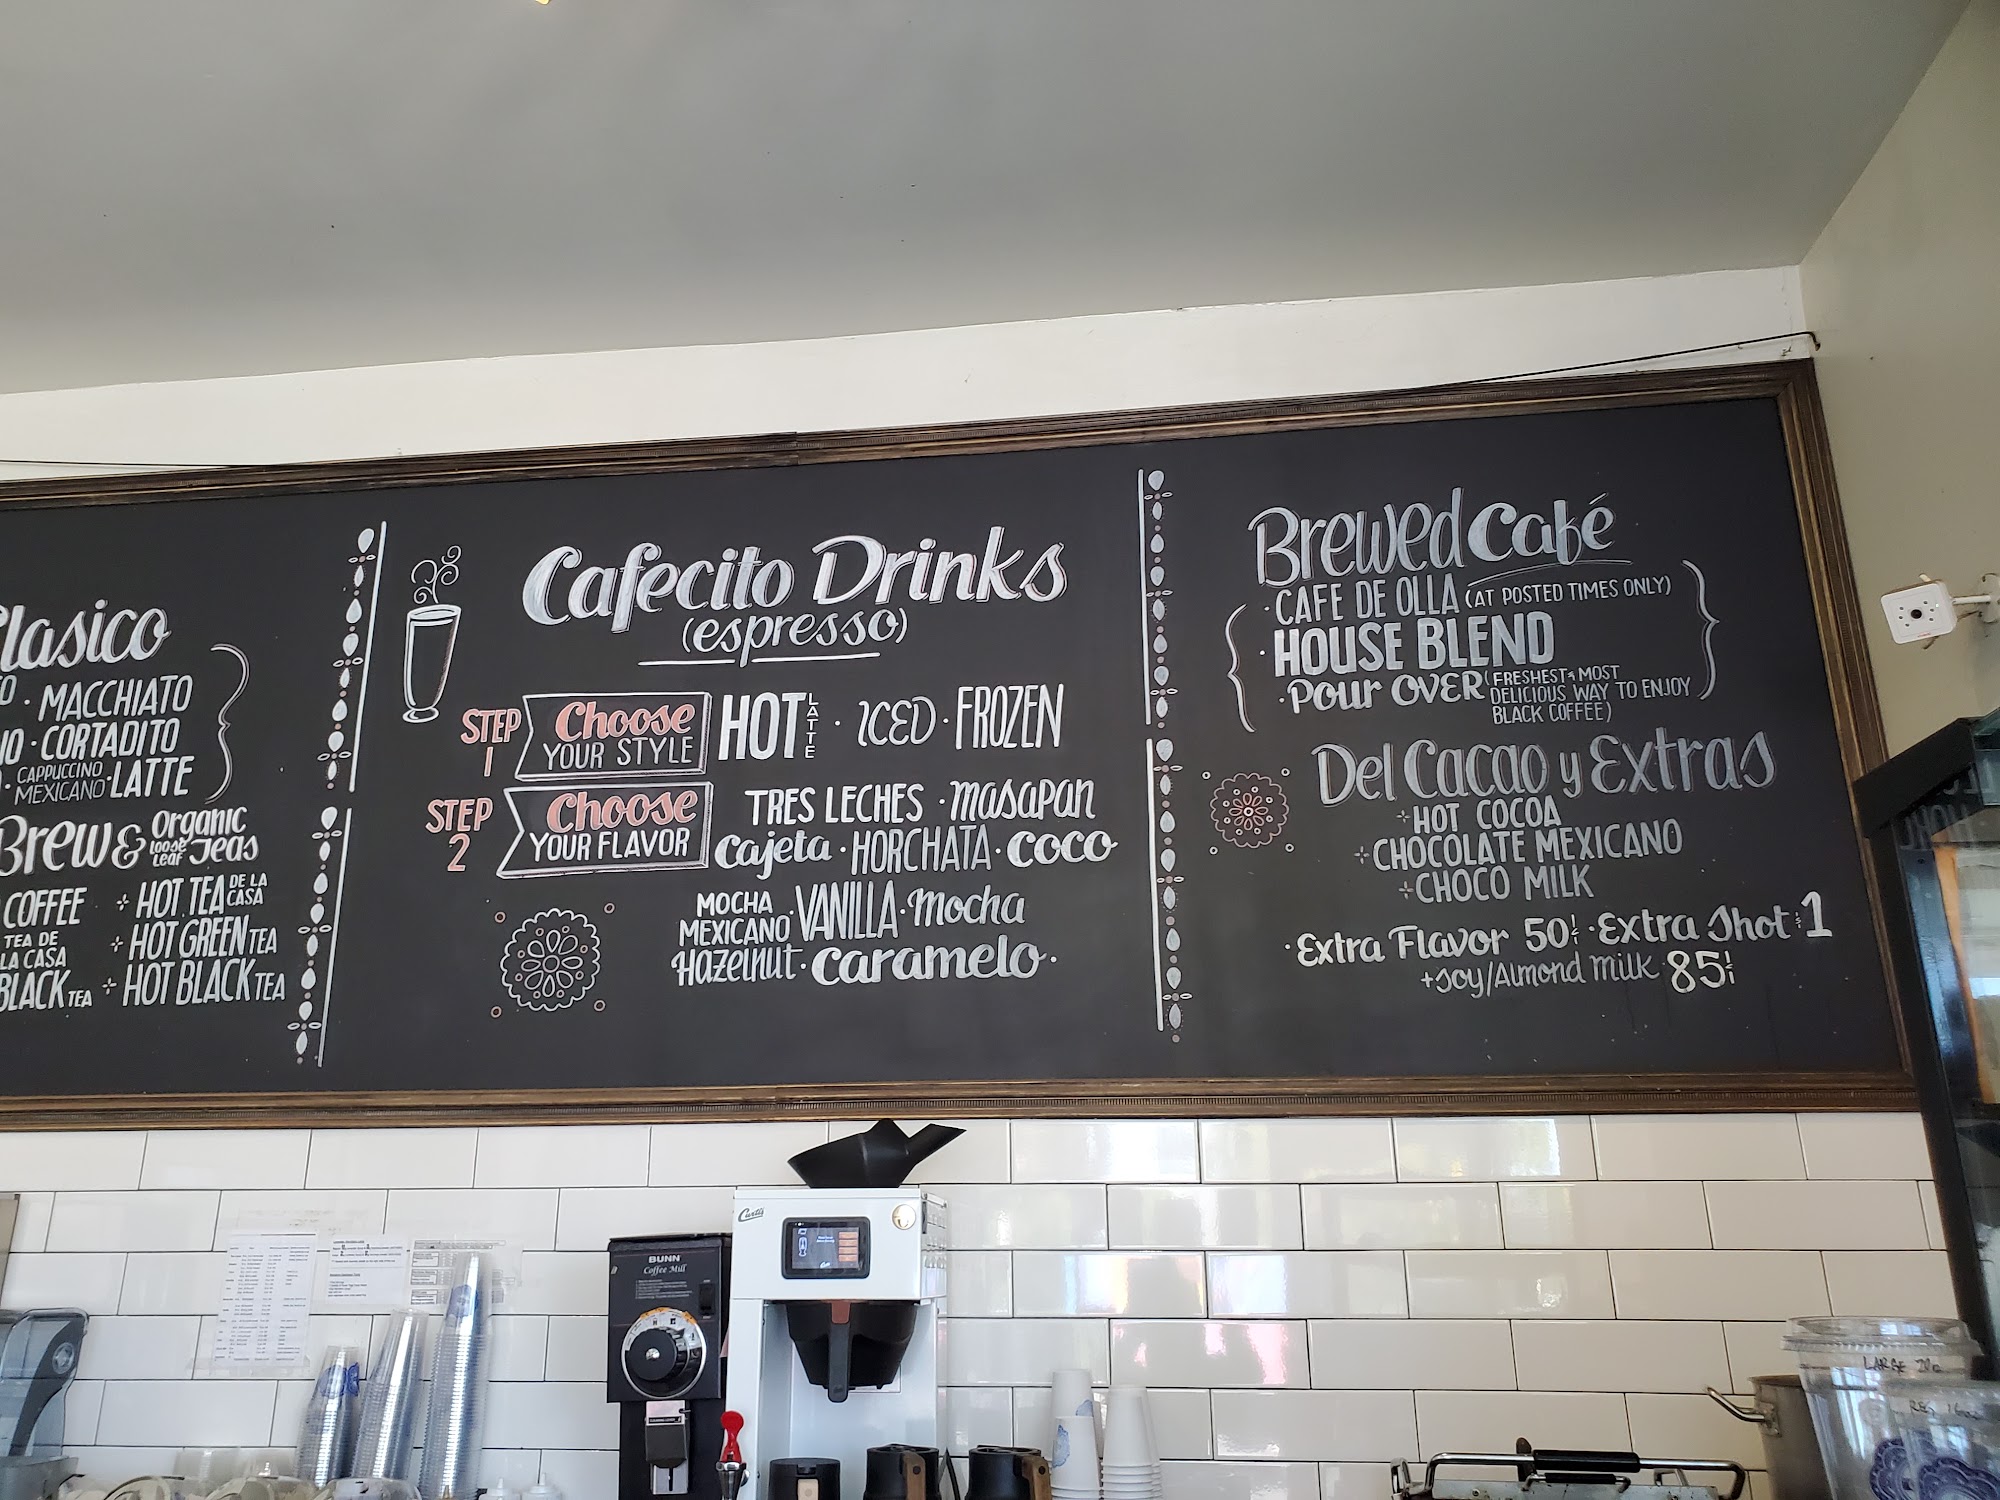 Clasico
· MACCHIATO
· CORTADITO
CAPPUCCINO
MEXICANO · LATTE
Brew & Organic
loose leaf Teas
COFFEE
TEA DE
LA CASA
BLACK TEA
+ HOT TEA DE LA CASA
+ HOT GREEN TEA
+ HOT BLACK TEA
Cafecito Drinks
(espresso)
STEP 1 Choose YOUR STYLE
HOT LATTE · ICED · FROZEN
STEP 2 Choose YOUR FLAVOR
TRES LECHES · masapan
cajeta · HORCHATA · coco
MOCHA MEXICANO · VANILLA · mocha
Hazelnut · caramelo ·
Brewed Café
· CAFE DE OLLA (AT POSTED TIMES ONLY)
· HOUSE BLEND
· Pour OVER (FRESHEST & MOST
DELICIOUS WAY TO ENJOY
BLACK COFFEE)
Del Cacao y Extras
+ HOT COCOA
+ CHOCOLATE MEXICANO
+ CHOCO MILK
· Extra Flavor 50¢ · Extra Shot $1
+ Soy/Almond milk 85¢
Curtis
BUNN
Coffee Mill
LARGE 20oz
REG 16oz